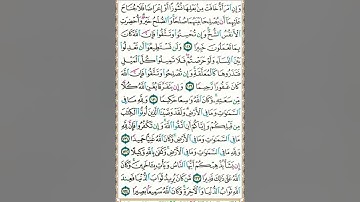 وَإِنِ ٱمْرَأَةٌ خَافَتْ مِنۢ بَعْلِهَا نُشُوزًا أَوْ إِعْرَاضًا فَلَا جُنَاحَ
عَلَيْهِمَآ أَن يُصْلِحَا بَيْنَهُمَا صُلْحًا ۚ وَٱلصُّلْحُ خَيْرٌ ۗ وَأُحْضِرَتِ
ٱلْأَنفُسُ ٱلشُّحَّ ۚ وَإِن تُحْسِنُوا۟ وَتَتَّقُوا۟ فَإِنَّ ٱللَّهَ كَانَ
بِمَا تَعْمَلُونَ خَبِيرًا ١٢٨ وَلَن تَسْتَطِيعُوٓا۟ أَن تَعْدِلُوا۟
بَيْنَ ٱلنِّسَآءِ وَلَوْ حَرَصْتُمْ ۖ فَلَا تَمِيلُوا۟ كُلَّ ٱلْمَيْلِ
فَتَذَرُوهَا كَٱلْمُعَلَّقَةِ ۚ وَإِن تُصْلِحُوا۟ وَتَتَّقُوا۟ فَإِنَّ ٱللَّهَ
كَانَ غَفُورًا رَّحِيمًا ١٢٩ وَإِن يَتَفَرَّقَا يُغْنِ ٱللَّهُ كُلًّا
مِّن سَعَتِهِۦ ۚ وَكَانَ ٱللَّهُ وَٰسِعًا حَكِيمًا ١٣٠ وَلِلَّهِ مَا فِى
ٱلسَّمَٰوَٰتِ وَمَا فِى ٱلْأَرْضِ ۗ وَلَقَدْ وَصَّيْنَا ٱلَّذِينَ أُوتُوا۟ ٱلْكِتَٰبَ
مِن قَبْلِكُمْ وَإِيَّاكُمْ أَنِ ٱتَّقُوا۟ ٱللَّهَ ۚ وَإِن تَكْفُرُوا۟ فَإِنَّ لِلَّهِ
مَا فِى ٱلسَّمَٰوَٰتِ وَمَا فِى ٱلْأَرْضِ ۚ وَكَانَ ٱللَّهُ غَنِيًّا حَمِيدًا ١٣١
وَلِلَّهِ مَا فِى ٱلسَّمَٰوَٰتِ وَمَا فِى ٱلْأَرْضِ ۚ وَكَفَىٰ بِٱللَّهِ وَكِيلًا ١٣٢
إِن يَشَأْ يُذْهِبْكُمْ أَيُّهَا ٱلنَّاسُ وَيَأْتِ بِـَٔاخَرِينَ ۚ وَكَانَ
ٱللَّهُ عَلَىٰ ذَٰلِكَ قَدِيرًا ١٣٣ مَّن كَانَ يُرِيدُ ثَوَابَ ٱلدُّنْيَا فَعِندَ
ٱللَّهِ ثَوَابُ ٱلدُّنْيَا وَٱلْءَاخِرَةِ ۚ وَكَانَ ٱللَّهُ سَمِيعًۢا بَصِيرًا ١٣٤